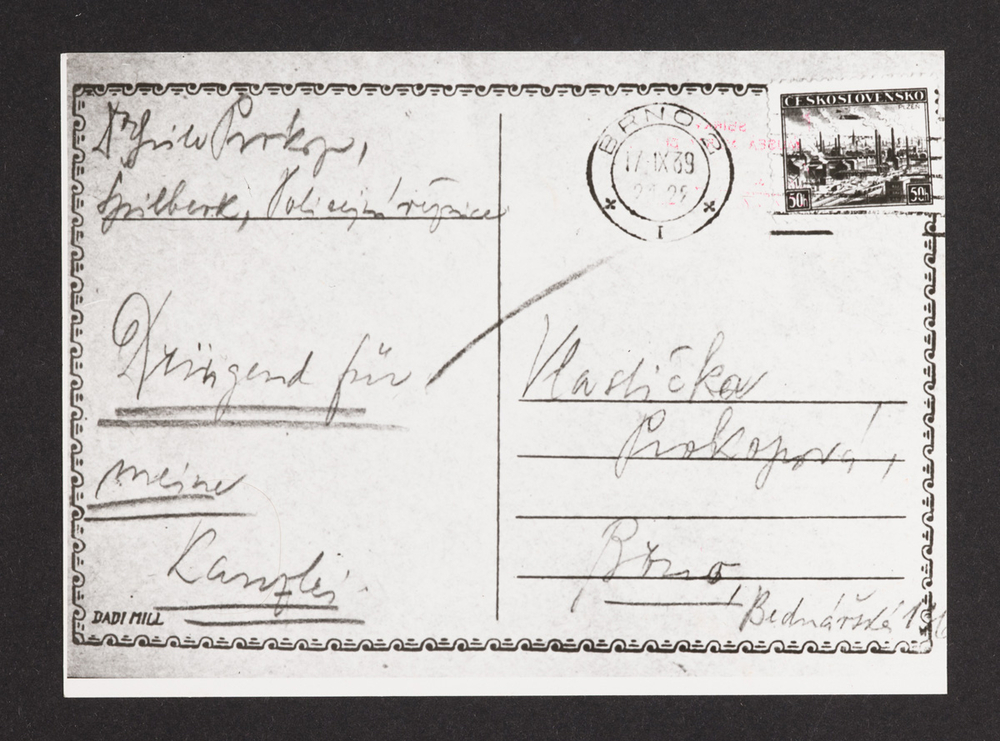 Prokop,
Špilberk, Policejní věznice
Dringend für
meine
Kanzlei
DADI MILL
BRNO 2
17. IX 39
I
ČESKOSLOVENSKO
PLZEŇ
50h 50h
Vlastička
Prokopová,
Brno,
Bednářská